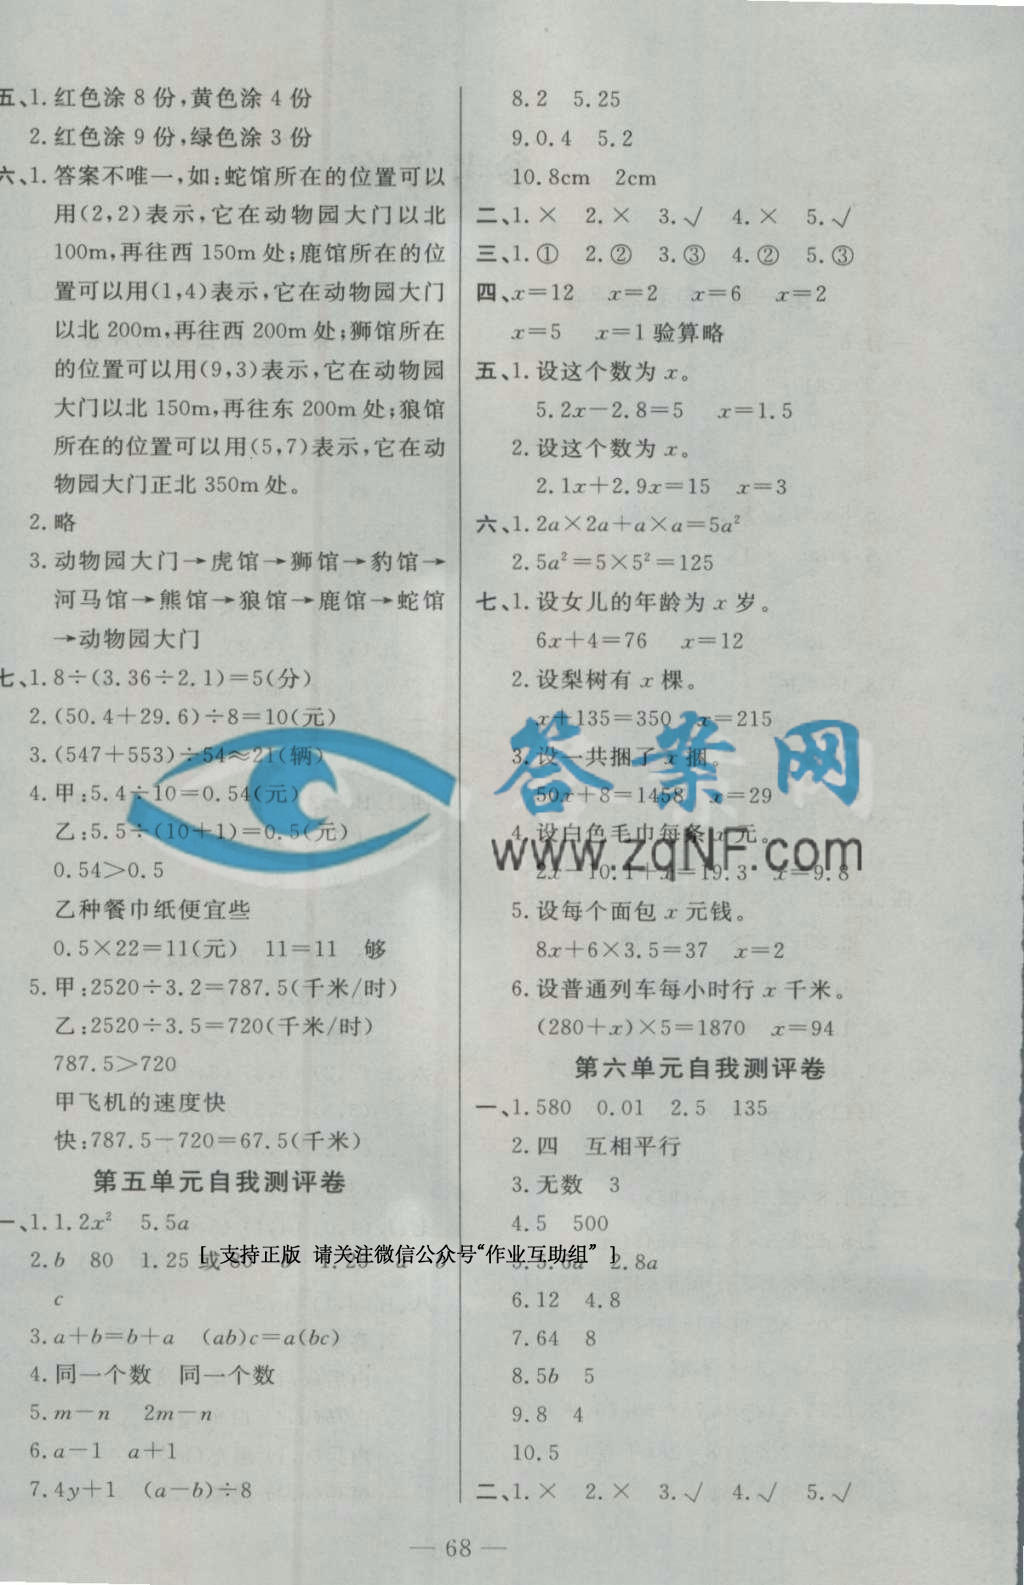 五、1. 红色涂 8 份,黄色涂 4 份
2. 红色涂 9 份,绿色涂 3 份
六、1. 答案不唯一,如:蛇馆所在的位置可以
用(2,2)表示,它在动物园大门以北
100m,再往西 150m处;鹿馆所在的位
置可以用(1,4)表示,它在动物园大门
以北 200m,再往西 200m 处;狮馆所在
的位置可以用(9,3)表示,它在动物园
大门以北 150m,再往东 200m 处;狼馆
所在的位置可以用(5,7)表示,它在动
物园大门正北 350m处。
2. 略
3. 动物园大门→虎馆→狮馆→豹馆→
河马馆→熊馆→狼馆→鹿馆→蛇馆
→动物园大门
七、1. 8÷(3.36÷2.1)=5(分)
2. (50.4+29.6)÷8=10(元)
3. (547+553)÷54≈21(辆)
4. 甲:5.4÷10=0.54(元)
乙:5.5÷(10+1)=0.5(元)
0.54>0.5
乙种餐巾纸便宜些
0.5×22=11(元) 11=11 够
5. 甲:2520÷3.2=787.5(千米/时)
乙:2520÷3.5=720(千米/时)
787.5>720
甲飞机的速度快
快:787.5-720=67.5(千米)
第五单元自我测评卷
一、1. 1.2x² 5.5a
2. b 80 1.25 或 80 b 1.25 a b
c
3. a+b=b+a (ab)c=a(bc)
4. 同一个数 同一个数
5. m-n 2m-n
6. a-1 a+1
7. 4y+1 (a-b)÷8
8. 2 5.25
9. 0.4 5.2
10. 8cm 2cm
二、1. × 2. × 3. √ 4. × 5. √
三、1. ① 2. ② 3. ③ 4. ② 5. ③
四、x=12 x=2 x=6 x=2
x=5 x=1 验算略
五、1. 设这个数为 x。
5.2x-2.8=5 x=1.5
2. 设这个数为 x。
2.1x+2.9x=15 x=3
六、1. 2a×2a+a×a=5a²
2. 5a²=5×5²=125
七、1. 设女儿的年龄为 x 岁。
6x+4=76 x=12
2. 设梨树有 x 棵。
x+135=350 x=215
3. 设一共捆了 x 捆。
50x+8=1458 x=29
4. 设白色毛巾每条 x 元。
2x-10.1+x=19.3 x=9.8
5. 设每个面包 x 元钱。
8x+6×3.5=37 x=2
6. 设普通列车每小时行 x 千米。
(280+x)×5=1870 x=94
第六单元自我测评卷
一、1. 580 0.01 2.5 135
2. 四 互相平行
3. 无数 3
4. 5 500
5. 5.6a 2.8a
6. 12 4.8
7. 64 8
8. 5b 5
9. 8 4
10. 5
二、1. × 2. × 3. √ 4. √ 5. √
答案网
www.zqNF.com
[ 支持正版 请关注微信公众号“作业互助组” ]
— 68 —